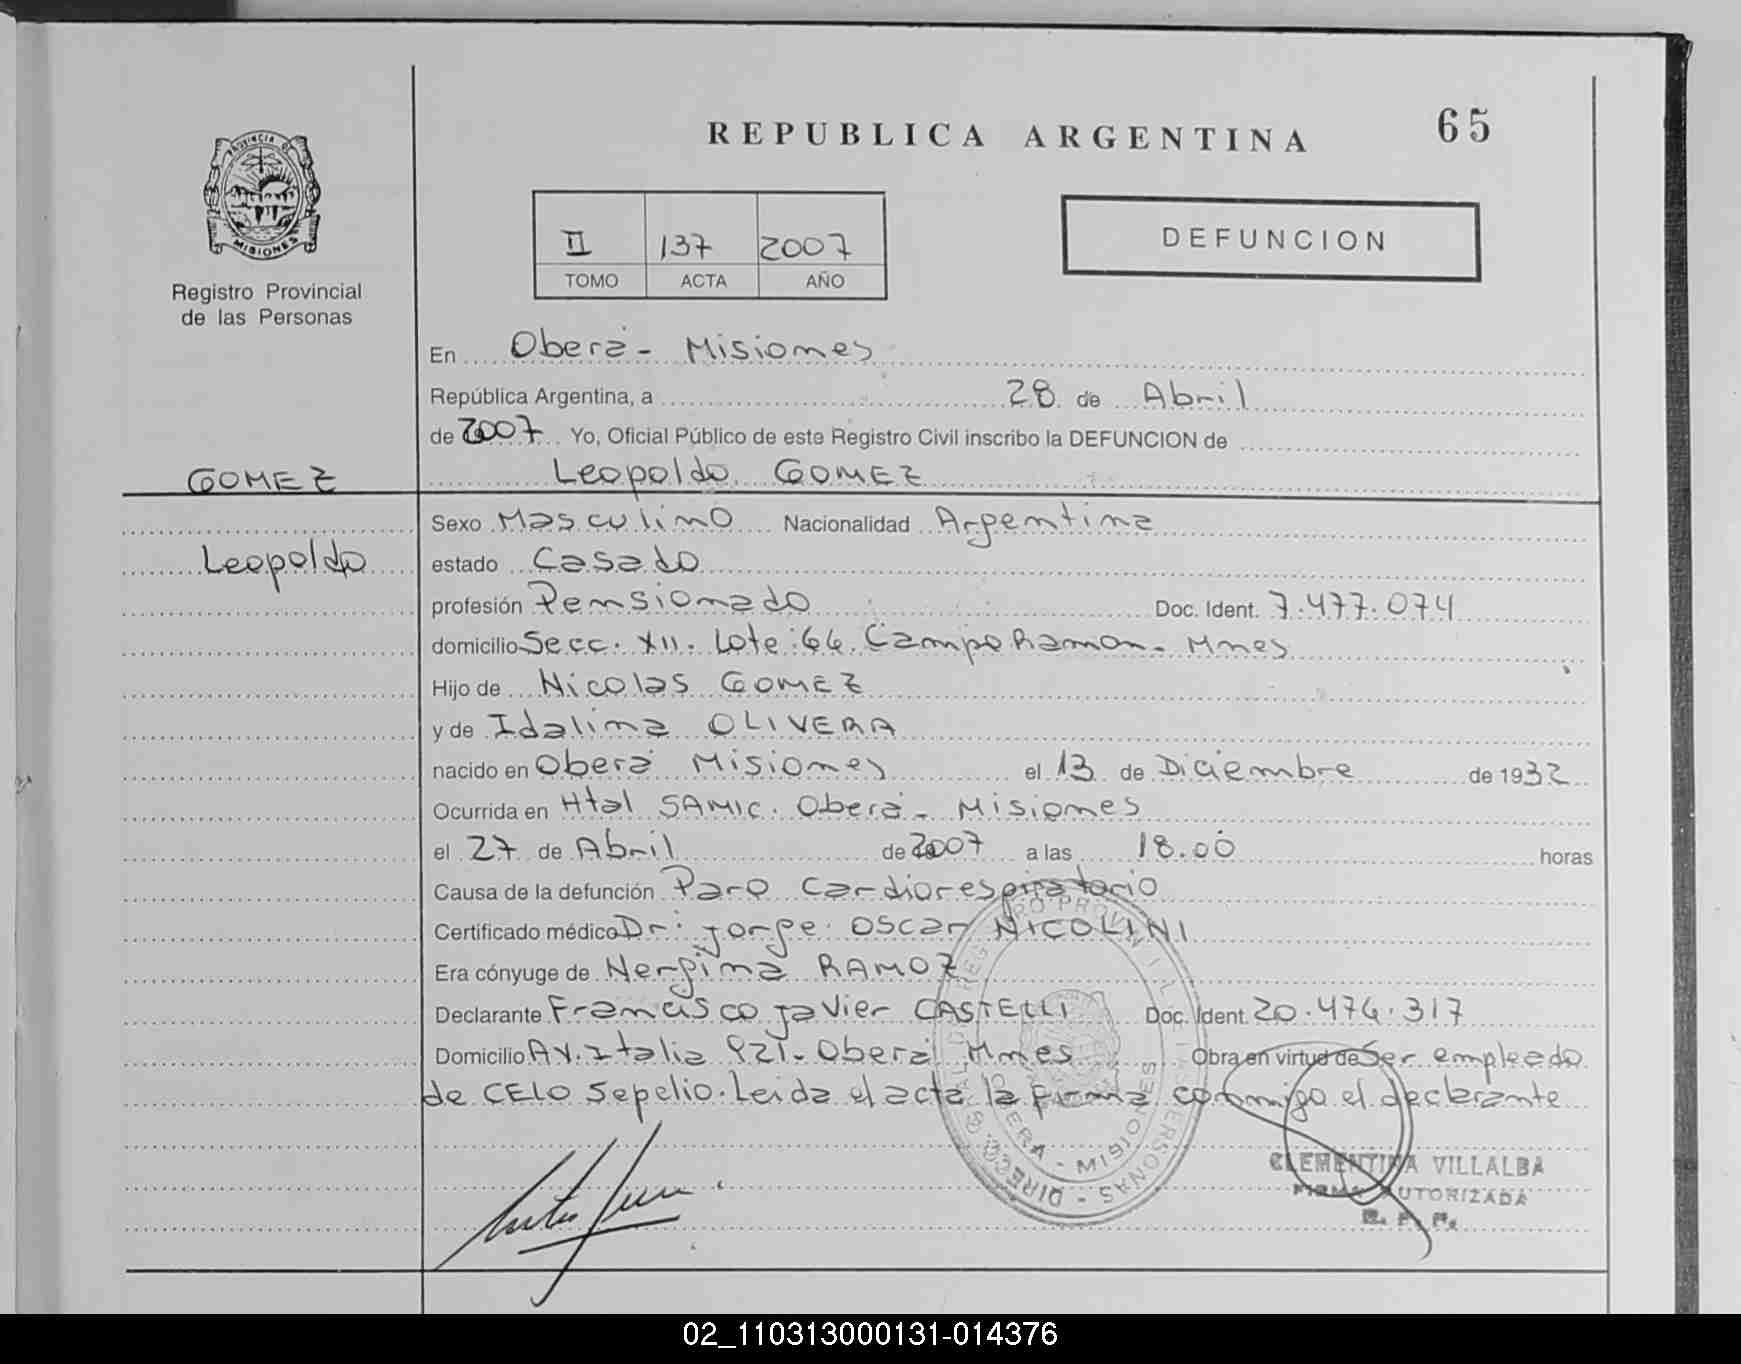 REPUBLICA ARGENTINA
65
PROVINCIA DE
MISIONES
Registro Provincial
de las Personas
II 137 2007
TOMO ACTA AÑO
DEFUNCION
En Oberá - Misiones
República Argentina, a 28 de Abril
de 2007 Yo, Oficial Público de este Registro Civil inscribo la DEFUNCION de
GOMEZ
Leopoldo GOMEZ
Leopoldo
Sexo Masculino Nacionalidad Argentina
estado Casado
profesión Pensionado Doc. Ident. 7.477.074
domicilio Secc. XII. Lote: 66. Campo Ramon. Mnes
Hijo de Nicolas GOMEZ
y de Idalina OLIVERA
nacido en Oberá Misiones el 13 de Diciembre de 1932
Ocurrida en Htal SAMIC. Oberá - Misiones
el 27 de Abril de 2007 a las 18.00 horas
Causa de la defunción Paro Cardiorespiratorio
Certificado médico Dr: Jorge Oscar NICOLINI
Era cónyuge de Nergina RAMOZ
Declarante Francisco Javier CASTELLI Doc. Ident. 20.474.317
Domicilio Av. Italia 921 - Oberá Mnes Obra en virtud de Ser empleado
de CELO Sepelio. Leida el acta la firma conmigo el declarante
OBERA - MISIONES
CLEMENTINA VILLALBA
FIRMA AUTORIZADA
R. P. P.
02_110313000131-014376